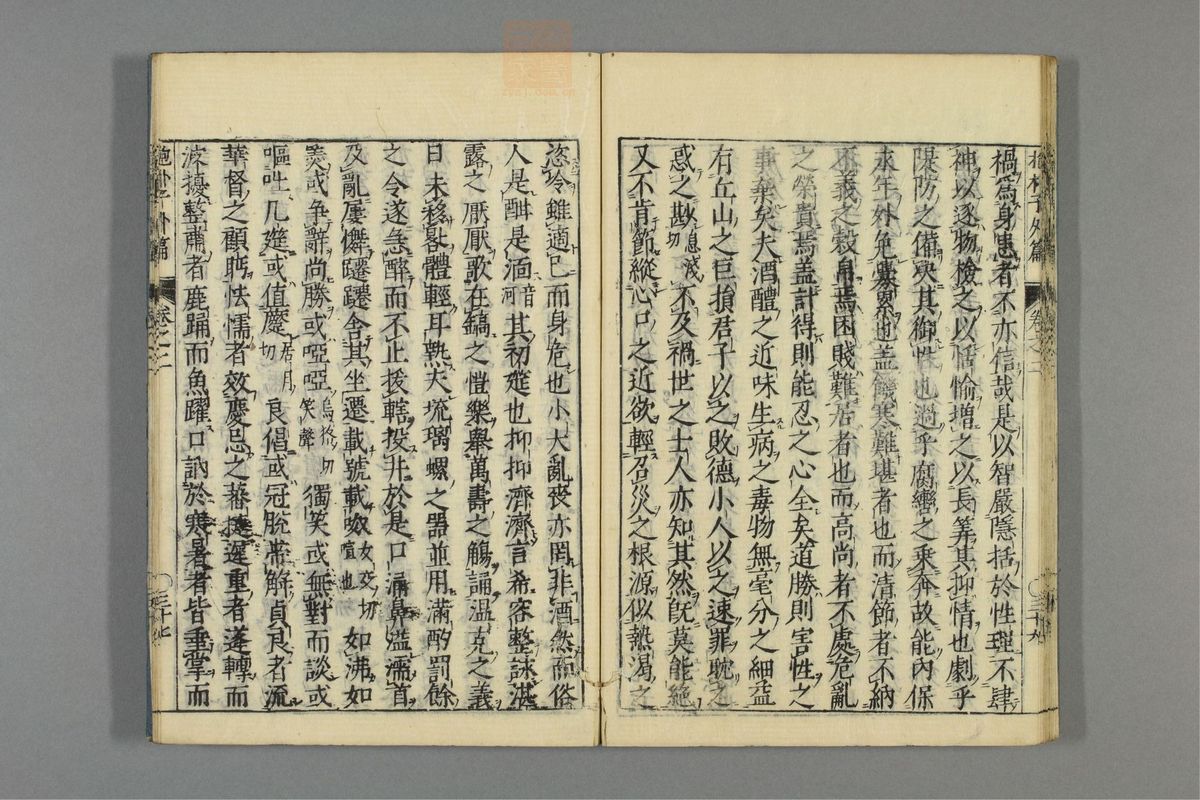 禍為身患者不亦信哉是以智嚴隱括於性理不肆
神以逐物檢之以恬愉增之以長筭其抑情也劇乎
隄防之備决其御性也過乎腐轡之乗奔故能内保
永年外免釁累也盖饑寒難堪者也而清節者不納
不義之穀帛焉困賤難居者也而高尚者不處危亂
之榮貴焉盖計得則能忍之心全矣道勝則害性之
事棄矣夫酒醴之近味生病之毒物無毫分之細益
有丘山之巨損君子以之敗德小人以之速罪耽之
惑之尠息淺切不及禍世之士人亦知其然既莫能絶
又不肯節縱心口之近欲輕召災之根源似熱渴之
恣冷雖適巳而身危也小大亂喪亦罔非酒然而俗
人是酣是湎音河其初筵也抑抑濟濟言希容整詠湛
露之厭厭歌在鎬之愷樂舉萬壽之觴誦温克之義
日未移晷體輕耳熟夫琉璃螺之器並用滿酌罰餘
之令遂急醉而不止拔轄投井於是口涌鼻溢濡首
及亂屢儛躚躚舎其坐遷載號載呶女交切喧也如沸如
羮或争辭尚勝或啞啞烏格切笑聲獨笑或無對而談或
嘔吐几筵或值蹷居月切良倡或冠脫帯解貞良者流
華督之顧眄怯懦者效慶忌之蕃捷遲重者蓬轉而
波擾整肅者鹿踊而魚躍口訥於寒暑者皆垂掌而
抱朴子外篇
卷之二
三十七